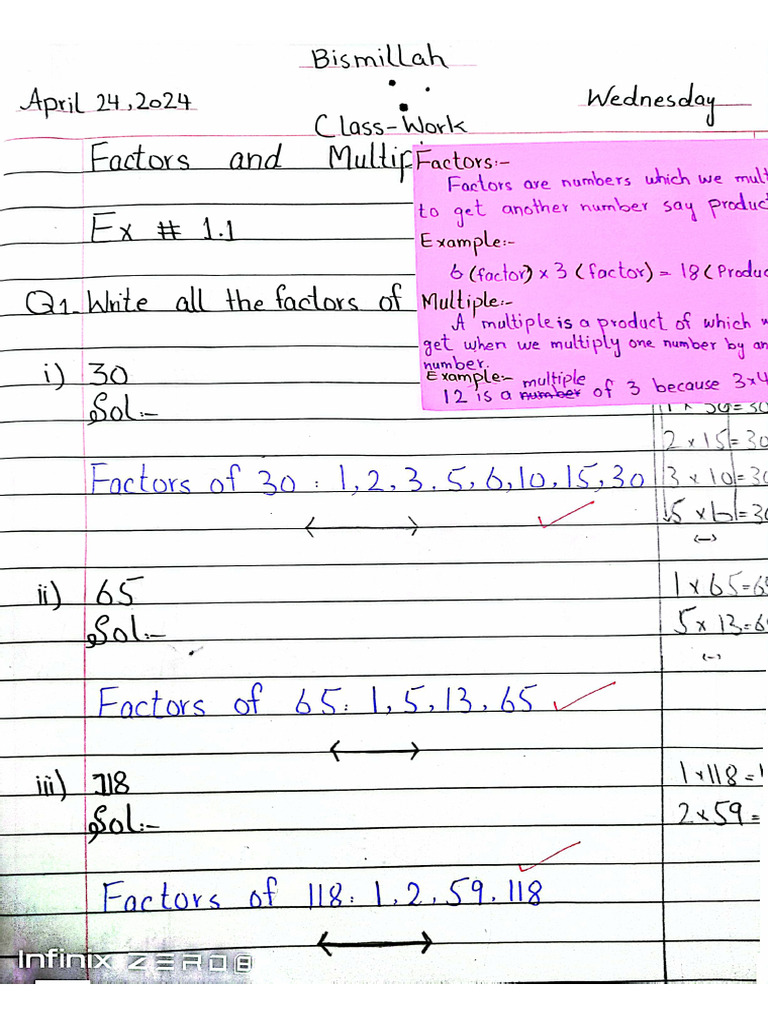 Bismillah
April 24, 2024
Wednesday
Class-Work
Factors and
Ex # 1.1
Q1. Write all the factors of
Factors:-
Factors are numbers which we
to get another number say
Example:-
6 (factor) x 3 (factor) = 18
Multiple:-
A multiple is a product of which
get when we multiply one number by
number.
Example:- multiple
12 is a number of 3 because 3x4
i) 30
Sol:-
1 x 30 = 30
2 x 15 = 30
Factors of 30 : 1, 2, 3, 5, 6, 10, 15, 30
3 x 10 = 30
5 x 6 = 30
ii) 65
1 x 65 = 65
Sol:-
5 x 13 = 65
Factors of 65 : 1, 5, 13, 65
iii) 118
1 x 118 =
Sol:-
2 x 59 =
Factors of 118 : 1, 2, 59, 118
Infinix ZERO 8